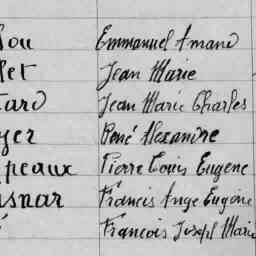 sou Emmanuel Amand
let Jean Marie
tard Jean Marie Charles
yer René Alexandre
peaux Pierre Louis Eugene
snar Francis Ange Eugène
François Joseph Marie